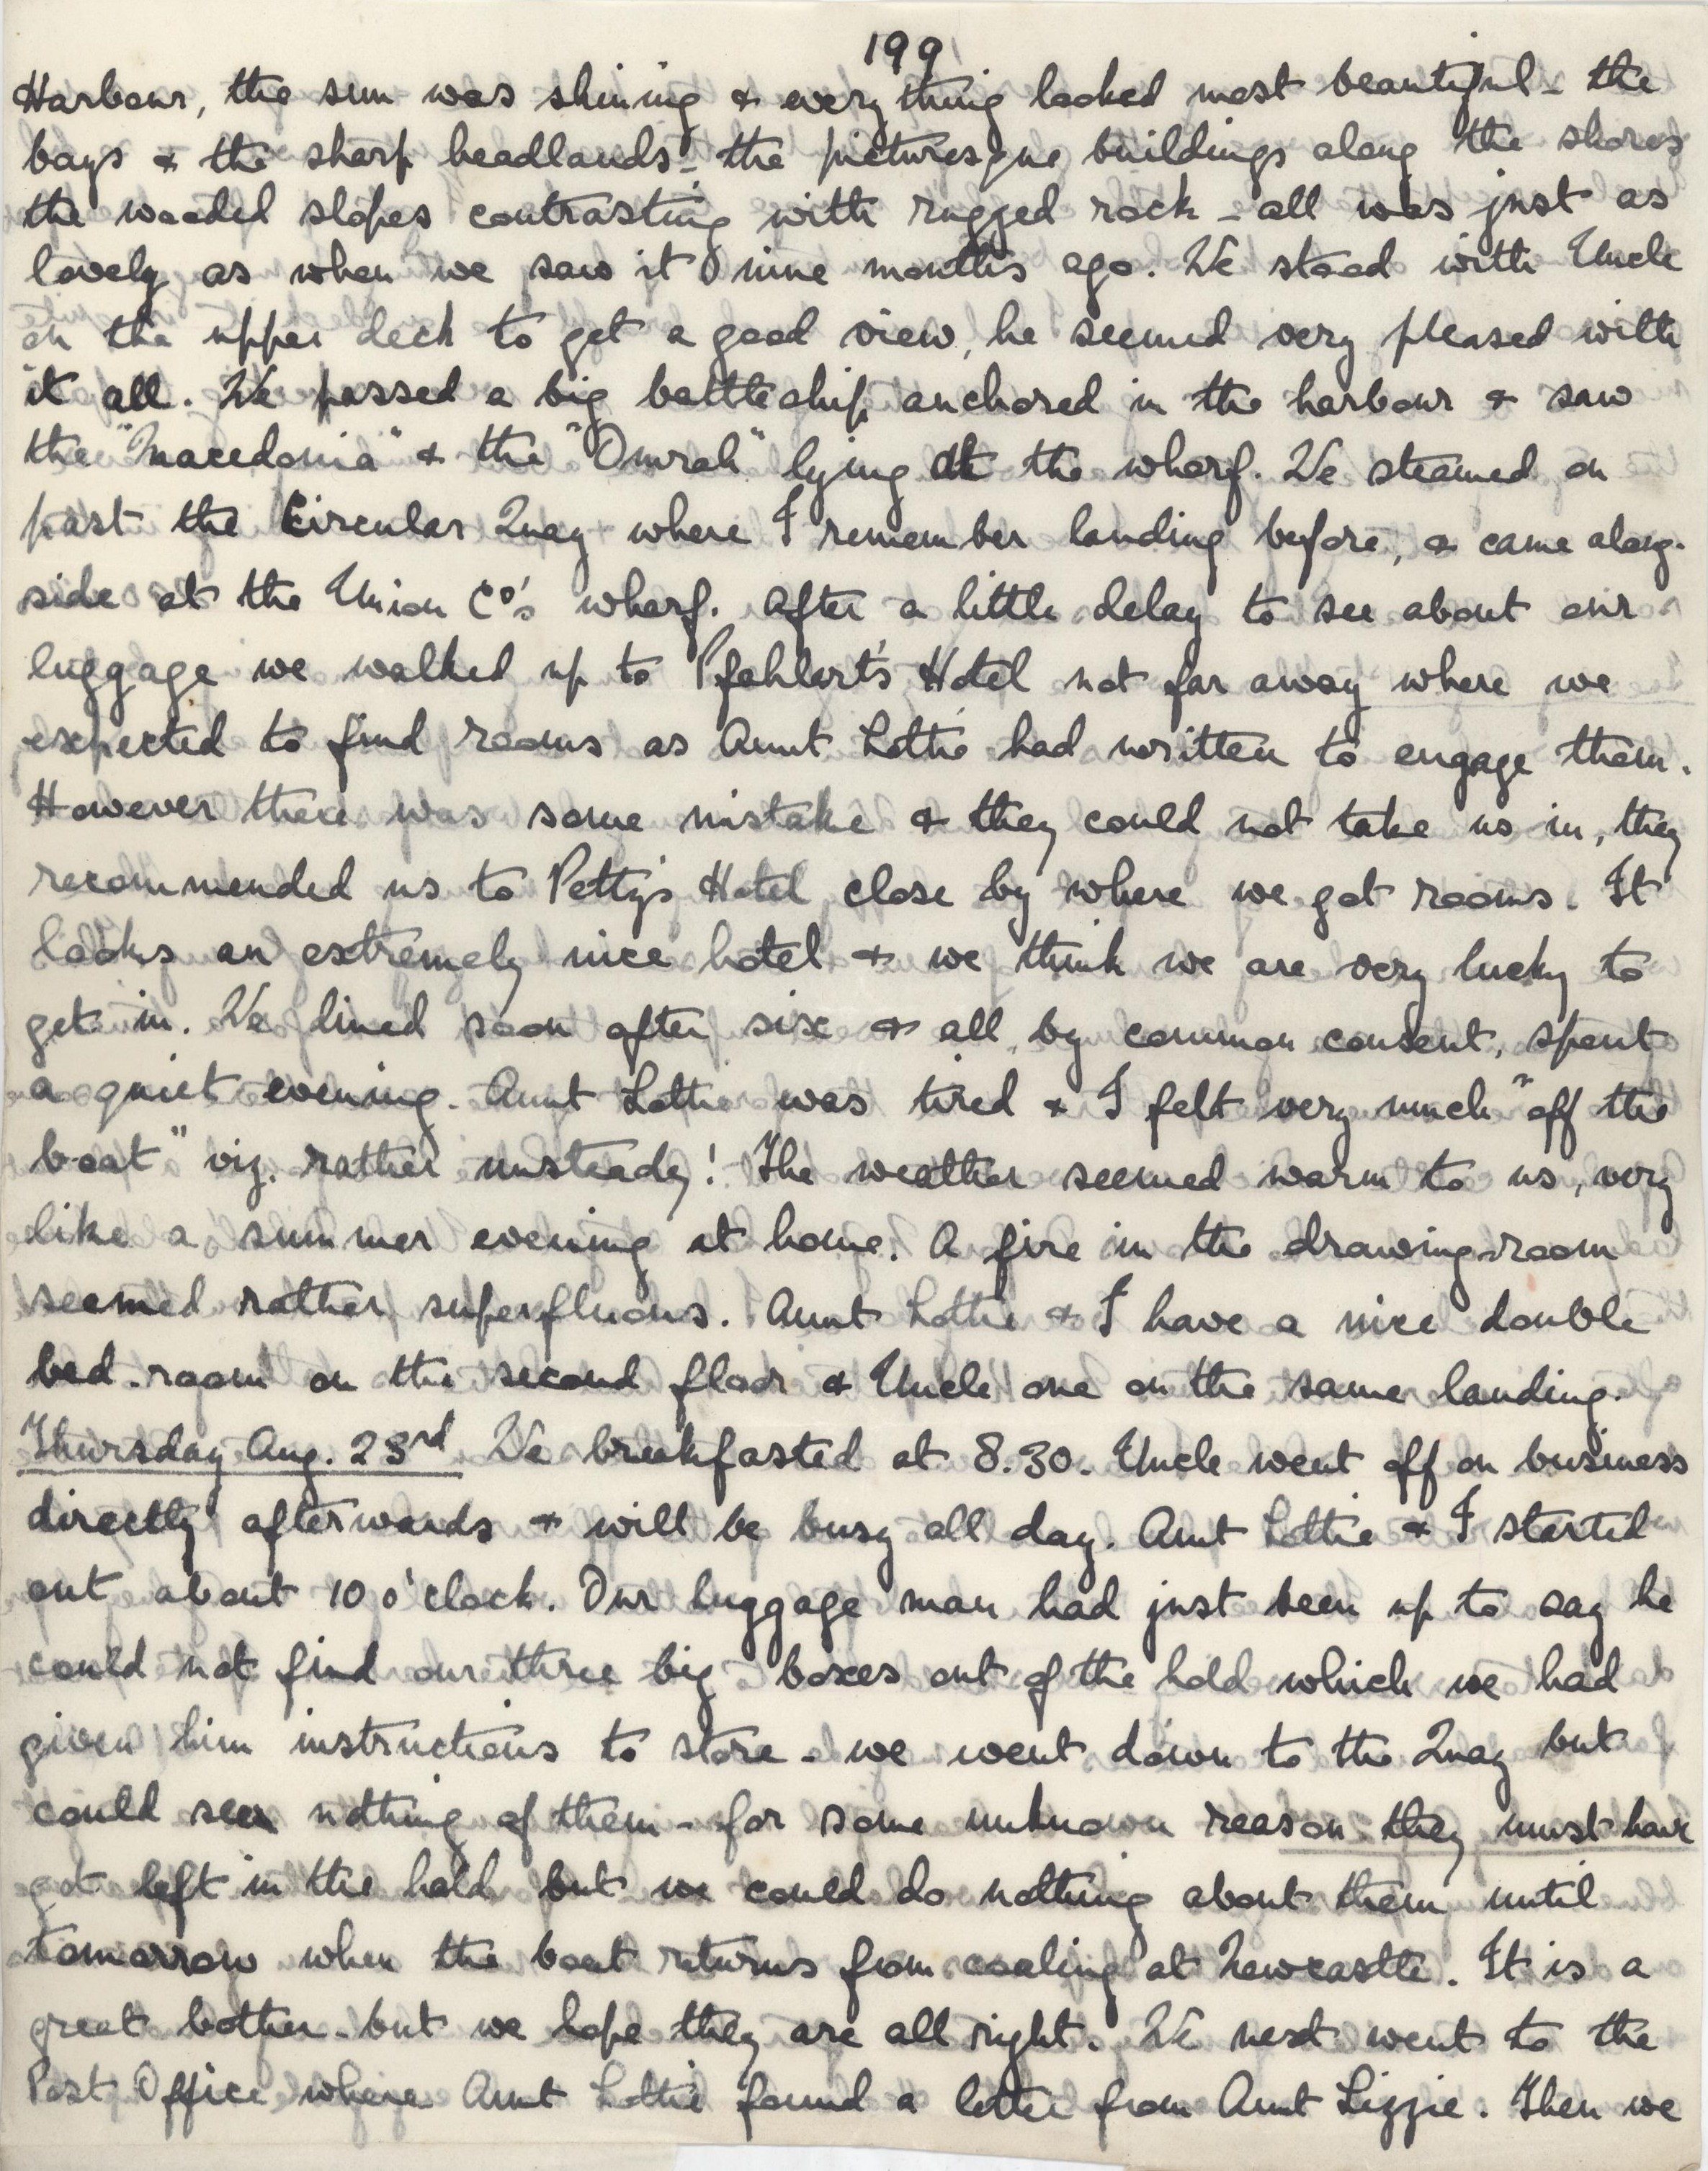 199
Harbour, the sun was shining & every thing looked most beautiful - the
bays & the sharp headlands - the picturesque buildings along the shores
the wooded slopes contrasting with rugged rock - all was just as
lovely as when we saw it nine months ago. We stood with Uncle
on the upper deck to get a good view, he seemed very pleased with
it all. We passed a big battleship anchored in the harbour & saw
the "Macedonia" & the "Omrah" lying at the wharf. We steamed on
past the Circular Quay where I remember landing before, & came along-
side at the Union Co's wharf. After a little delay to see about our
luggage we walked up to Pfahlert's Hotel not far away where we
expected to find rooms as Aunt Lottie had written to engage them.
However there was some mistake & they could not take us in, they
recommended us to Petty's Hotel close by where we got rooms. It
looks an extremely nice hotel & we think we are very lucky to
get in. We dined soon after six & all, by common consent, spent
a quiet evening. Aunt Lottie was tired & I felt very much "off the
boat" viz. rather unsteady! The weather seemed warm to us, very
like a summer evening at home. A fire in the drawing-room
seemed rather superfluous. Aunt Lottie & I have a nice double
bed-room on the second floor & Uncle one on the same landing.
Thursday Aug. 23rd We breakfasted at 8.30. Uncle went off on business
directly afterwards & will be busy all day. Aunt Lottie & I started
out about 10 o'clock. Our luggage man had just been up to say he
could not find our three big boxes out of the hold which we had
given him instructions to store - we went down to the Quay but
could see nothing of them - for some unknown reason they must have
got left in the hold but we could do nothing about them until
tomorrow when the boat returns from coaling at Newcastle. It is a
great bother - but we hope they are all right. We next went to the
Post Office where Aunt Lottie found a letter from Aunt Lizzie. Then we